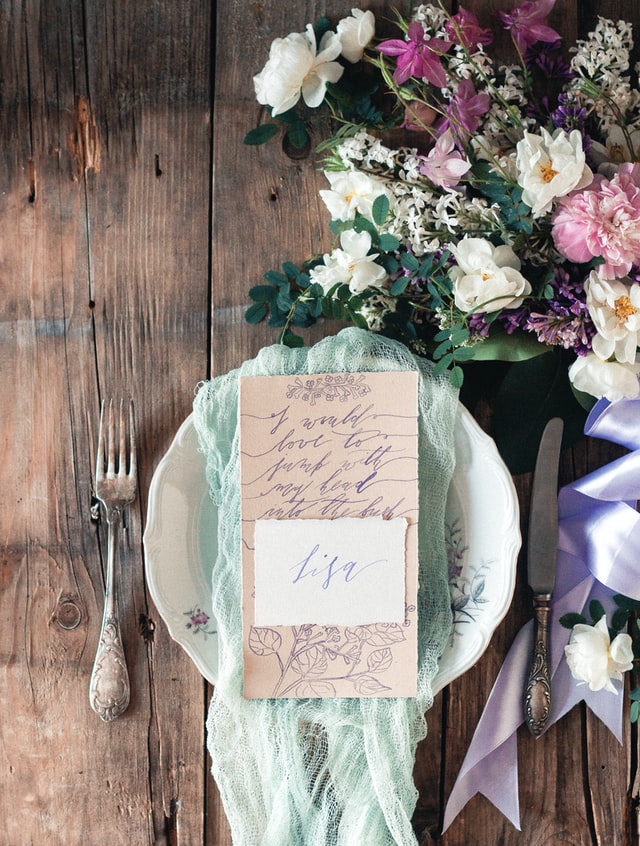 I would
love to
jump with
my head
into the bush
Lisa